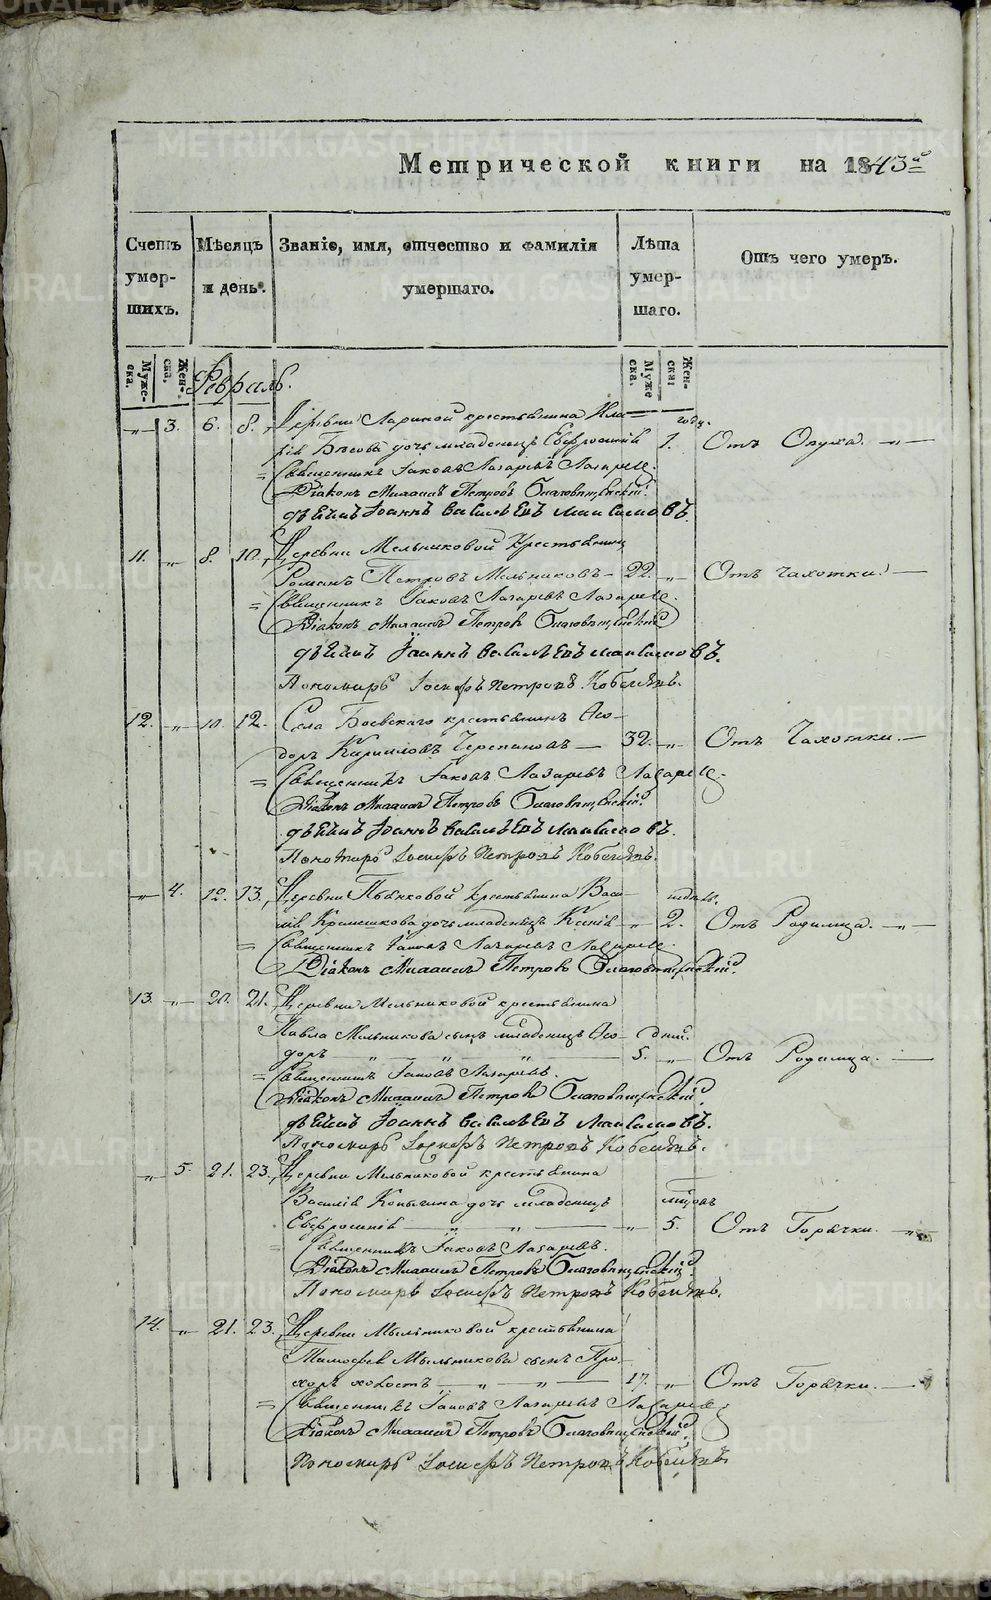 Метрической книги на 1843й
Счетъ умер- шихъ.
Мѣсяцъ и день.
Званіе, имя, отчество и фамилія умершаго.
Лѣта умер- шаго.
Отъ чего умеръ.
Муже- ска.
Жен- ска.
Муже ска.
Жен- ска.
Февраль.
„ 3. 6. 8. Деревни Лариной крестьянина
Бѣсова дочь младенецъ Евфросинія 1. Отъ Опуха. „
Священникъ Іаковъ Лазаревъ Лазаревъ
Діаконъ Михаилъ Петровъ Благовѣщенскій.
дьячокъ Іоаннъ васильевъ
11. „ 8. 10. Деревни Мельниковой Крестьянинъ
Романъ Петровъ Мельниковъ 22. „ Отъ чахотки.
Священникъ Іаковъ Лазаревъ Лазаревъ
Діаконъ Михаилъ Петровъ Благовѣщенскій
дьячокъ Іоаннъ васильевъ
Пономарь Іосифъ Петровъ
12. „ 10. 12. Села Боевскаго крестьянинъ Ѳео-
доръ Кирилловъ Черепановъ 32. „ Отъ Чахотки.
Священникъ Іаковъ Лазаревъ Лазаревъ
Діаконъ Михаилъ Петровъ Благовѣщенскій.
дьячокъ Іоаннъ васильевъ
Пономарь Іосифъ Петровъ
„ 4. 12. 13. Деревни Пьянковой Крестьянина Васи- недѣль.
лія дочь младенецъ Ксенія „ 2. Отъ Родимца. „
Священникъ Іаковъ Лазаревъ Лазаревъ
Діаконъ Михаилъ Петровъ Благовѣщенскій.
13. „ 20. 21. Деревни Мельниковой крестьянина
Павла Мельникова сынъ младенецъ Ѳео- дней.
доръ „ „ „ 5. „ Отъ Родимца.
Священникъ Іаковъ Лазаревъ.
Діаконъ Михаилъ Петровъ Благовѣщенскій.
дьячокъ Іоаннъ васильевъ
Пономарь Іосифъ Петровъ
„ 5. 21. 23. Деревни Мельниковой крестьянина
Василія Копыгина дочь младенецъ мѣсяцъ
Евфросинія „ „ 5. Отъ Горячки. „
Священникъ Іаковъ Лазаревъ.
Діаконъ Михаилъ Петровъ Благовѣщенскій
Пономарь Іосифъ Петровъ
14. „ 21. 23. Деревни Мыльниковой крестьянина
Тимофея Мыльникова сынъ Про-
хоръ холостъ „ „ 17. „ Отъ Горячки.
Священникъ Іаковъ Лазаревъ Лазаревъ
Діаконъ Михаилъ Петровъ Благовѣщенскій.
Пономарь Іосифъ Петровъ